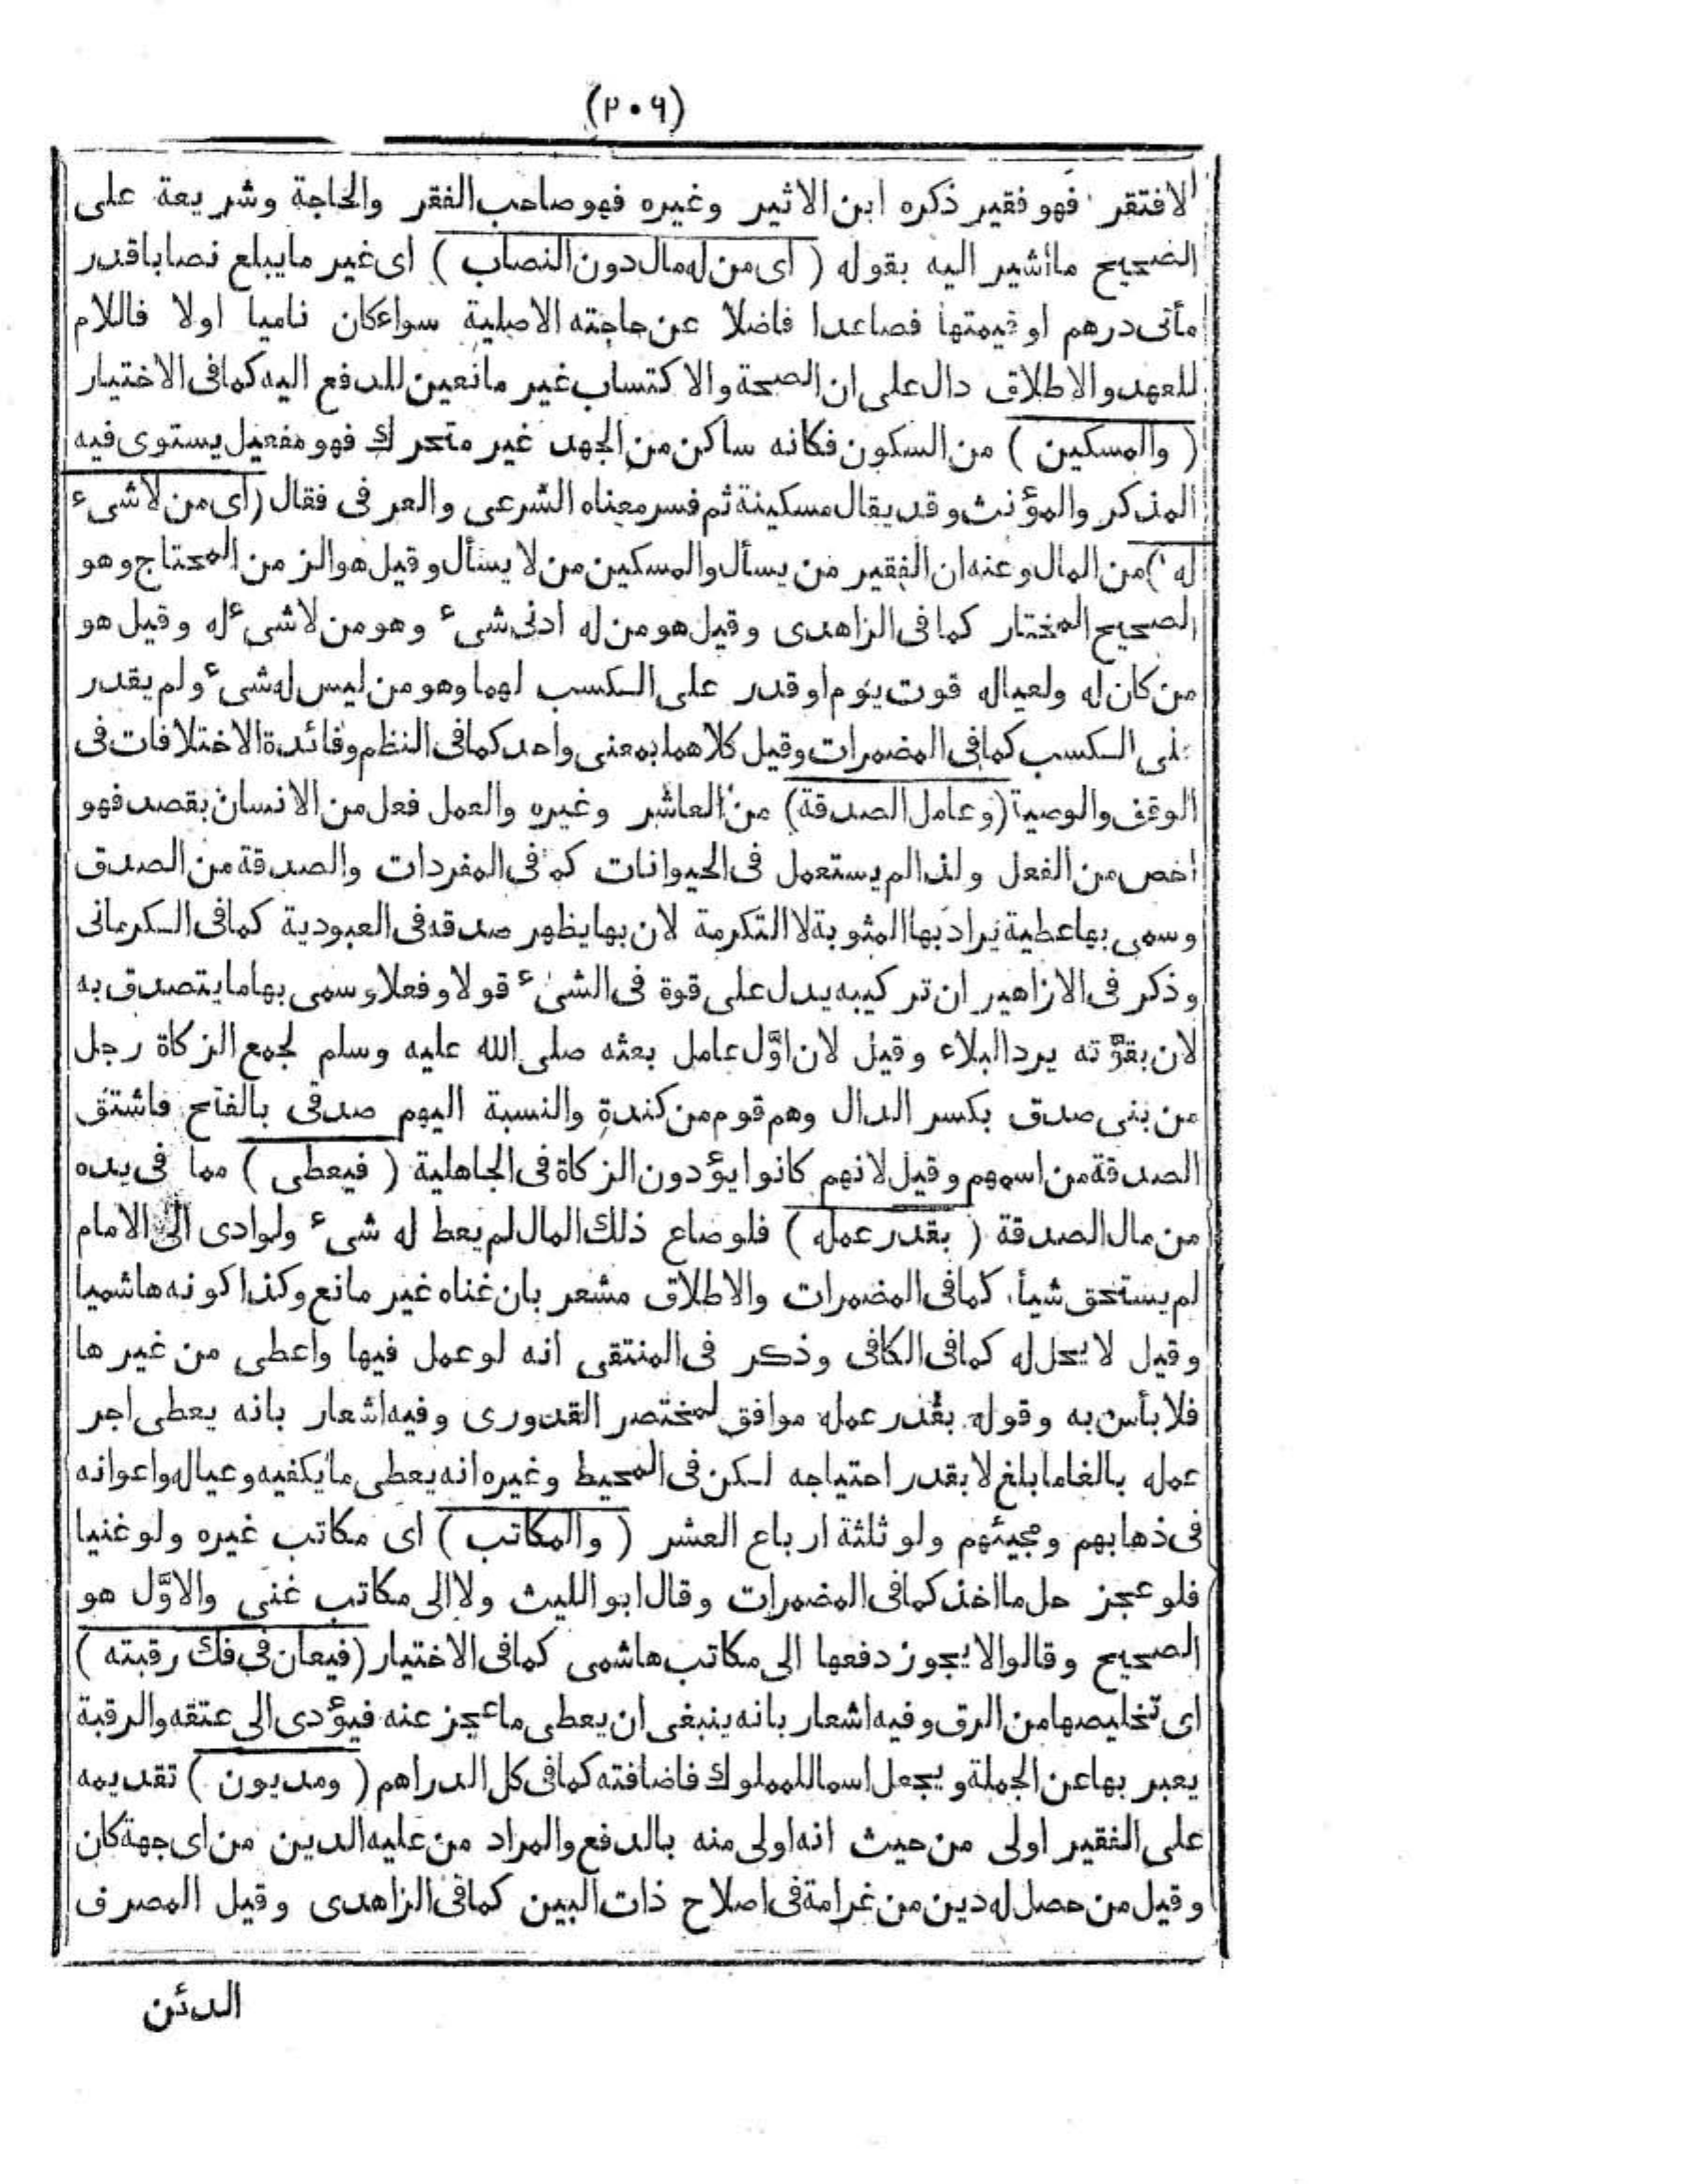 (٢٠٦)
لافتقر فهو فقير ذكره ابن الاثير وغيره فهو صاحب الفقر والحاجة وشريعة على
الصحيح ما اشير اليه بقوله (اى من له مال دون النصاب) اى غير ما يبلغ نصابا قدر
مأتى درهم او قيمتها فصاعدا فاضلا عن حاجته الاصلية سواء كان ناميا اولا فاللام
للعهد والاطلاق دال على ان الصحة والاكتساب غير مانعين للدفع اليه كما فى الاختيار
(والمسكين) من السكون فكانه ساكن من الجهد غير متحرك فهو مفعيل يستوى فيه
المذكر والمؤنث وقد يقال مسكينة ثم فسر معناه الشرعى والعرفى فقال (اى من لا شىء
له) من المال وعنه ان الفقير من يسأل والمسكين من لا يسأل وقيل هو الزمن المحتاج وهو
الصحيح المختار كما فى الزاهدى وقيل هو من له ادنى شىء وهو من لا شىء له وقيل هو
من كان له ولعياله قوت يوم او قدر على الكسب لهما وهو من ليس له شىء ولم يقدر
على الكسب كما فى المضمرات وقيل كلاهما بمعنى واحد كما فى النظم وفائدة الاختلافات فى
الوقف والوصية (وعامل الصدقة) من العاشر وغيره والعمل فعل من الانسان بقصد فهو
اخص من الفعل ولذا لم يستعمل فى الحيوانات كما فى المفردات والصدقة من الصدق
وسمى بها عطية يراد بها المثوبة لا التكرمة لان بها يظهر صدقه فى العبودية كما فى الكرمانى
وذكر فى الازاهير ان تركيبه يدل على قوة فى الشىء قولا وفعلا وسمى بها ما يتصدق به
لان بقوّته يرد البلاء وقيل لان اوّل عامل بعثه صلى الله عليه وسلم لجمع الزكاة رجل
من بنى صدق بكسر الدال وهم قوم من كندة والنسبة اليهم صدقى بالفتح فاشتق
الصدقة من اسمهم وقيل لانهم كانوا يؤدون الزكاة فى الجاهلية (فيعطى) مما فى يده
من مال الصدقة (بقدر عمله) فلو ضاع ذلك المال لم يعط له شىء ولو ادى الى الامام
لم يستحق شيأ كما فى المضمرات والاطلاق مشعر بان غناه غير مانع وكذا كونه هاشميا
وقيل لا يحل له كما فى الكافى وذكر فى المنتقى انه لو عمل فيها واعطى من غيرها
فلا بأس به وقوله بقدر عمله موافق لمختصر القدورى وفيه اشعار بانه يعطى اجر
عمله بالغا ما بلغ لا بقدر احتياجه لكن فى المحيط وغيره انه يعطى ما يكفيه وعياله واعوانه
فى ذهابهم ومجيئهم ولو ثلثة ارباع العشر (والمكاتب) اى مكاتب غيره ولو غنيا
فلو عجز حل ما اخذ كما فى المضمرات وقال ابو الليث ولا الى مكاتب غنى والاوّل هو
الصحيح وقالوا لا يجوز دفعها الى مكاتب هاشمى كما فى الاختيار (فيعان فى فك رقبته)
اى تخليصها من الرق وفيه اشعار بانه ينبغى ان يعطى ما عجز عنه فيؤدى الى عتقه والرقبة
يعبر بها عن الجملة ويجعل اسما للمملوك فاضافته كما فى كل الدراهم (ومديون) تقديمه
على الفقير اولى من حيث انه اولى منه بالدفع والمراد من عليه الدين من اى جهة كان
وقيل من حصل له دين من غرامة فى اصلاح ذات البين كما فى الزاهدى وقيل المصرف
الدئن